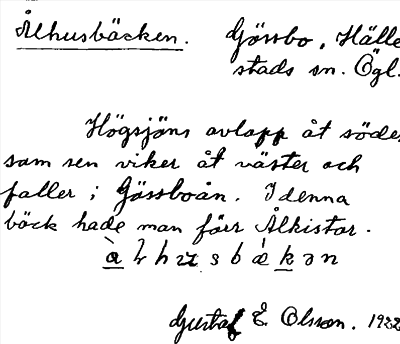 Ålhusbäcken. Gössbo, Hälle
stads sn. Ögl.
Högsjöns avlopp åt söder
som sen viker åt väster och
faller i Gössboån. I denna
bäck hade man förr Ålkistor.
Gustaf E Olsson. 1922